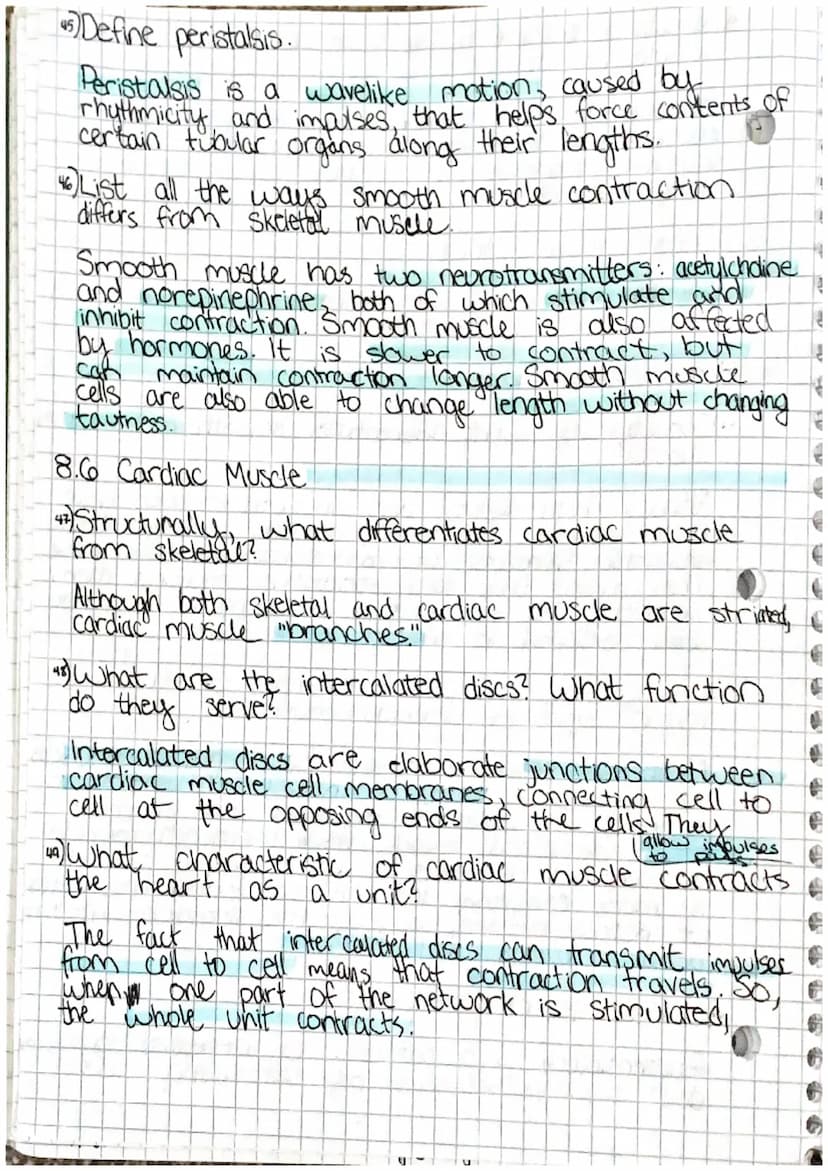 45) Define peristalsis.
Peristalsis is a wavelike motion, caused by
rhythmicity and impulses, that helps force contents of
certain tubular organs along their lengths.
46) List all the ways smooth muscle contraction
differs from skeletal muscle.
Smooth muscle has two neurotransmitters: acetylcholine
and norepinephrine, both of which stimulate and
inhibit contraction. Smooth muscle is also affected
by hormones. It is slower to contract, but
can maintain contraction longer. Smooth muscle
cells are also able to change length without changing
tautness.
8.6 Cardiac Muscle
47) Structurally, what differentiates cardiac muscle
from skeletal?
Although both skeletal and cardiac muscle are striated,
cardiac muscle "branches."
48) What are the intercalated discs? What function
do they serve?
Intercalated discs are elaborate junctions between
cardiac muscle cell membranes, connecting cell to
cell at the opposing ends of the cells. They
allow impulses
to pass.
49) What characteristic of cardiac muscle contracts
the heart as a unit?
The fact that intercalated discs can transmit impulses
from cell to cell means that contraction travels. So,
when one part of the network is stimulated,
the whole unit contracts.